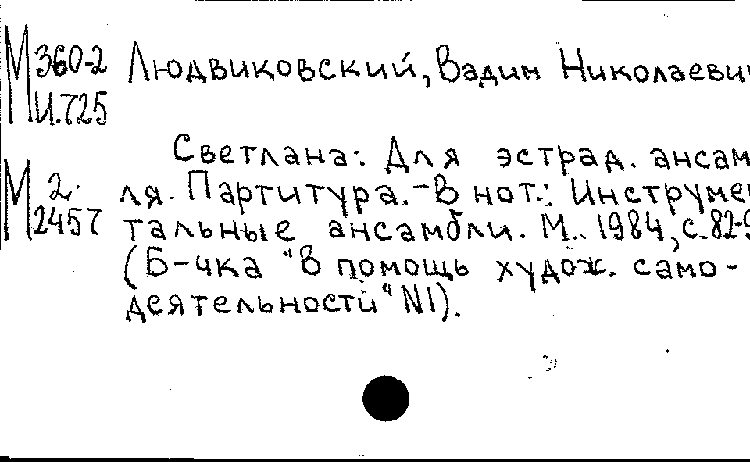 М 360-2 Людвиковский, Вадим Николаевич
И.725
Светлана: Для эстрад. ансам
М 2. ля. Партитура.-В нот.: Инструмен
2457 тальные ансамбли. М., 1984, с.82-9
(Б-чка "В помощь худож. само-
деятельности" №1).